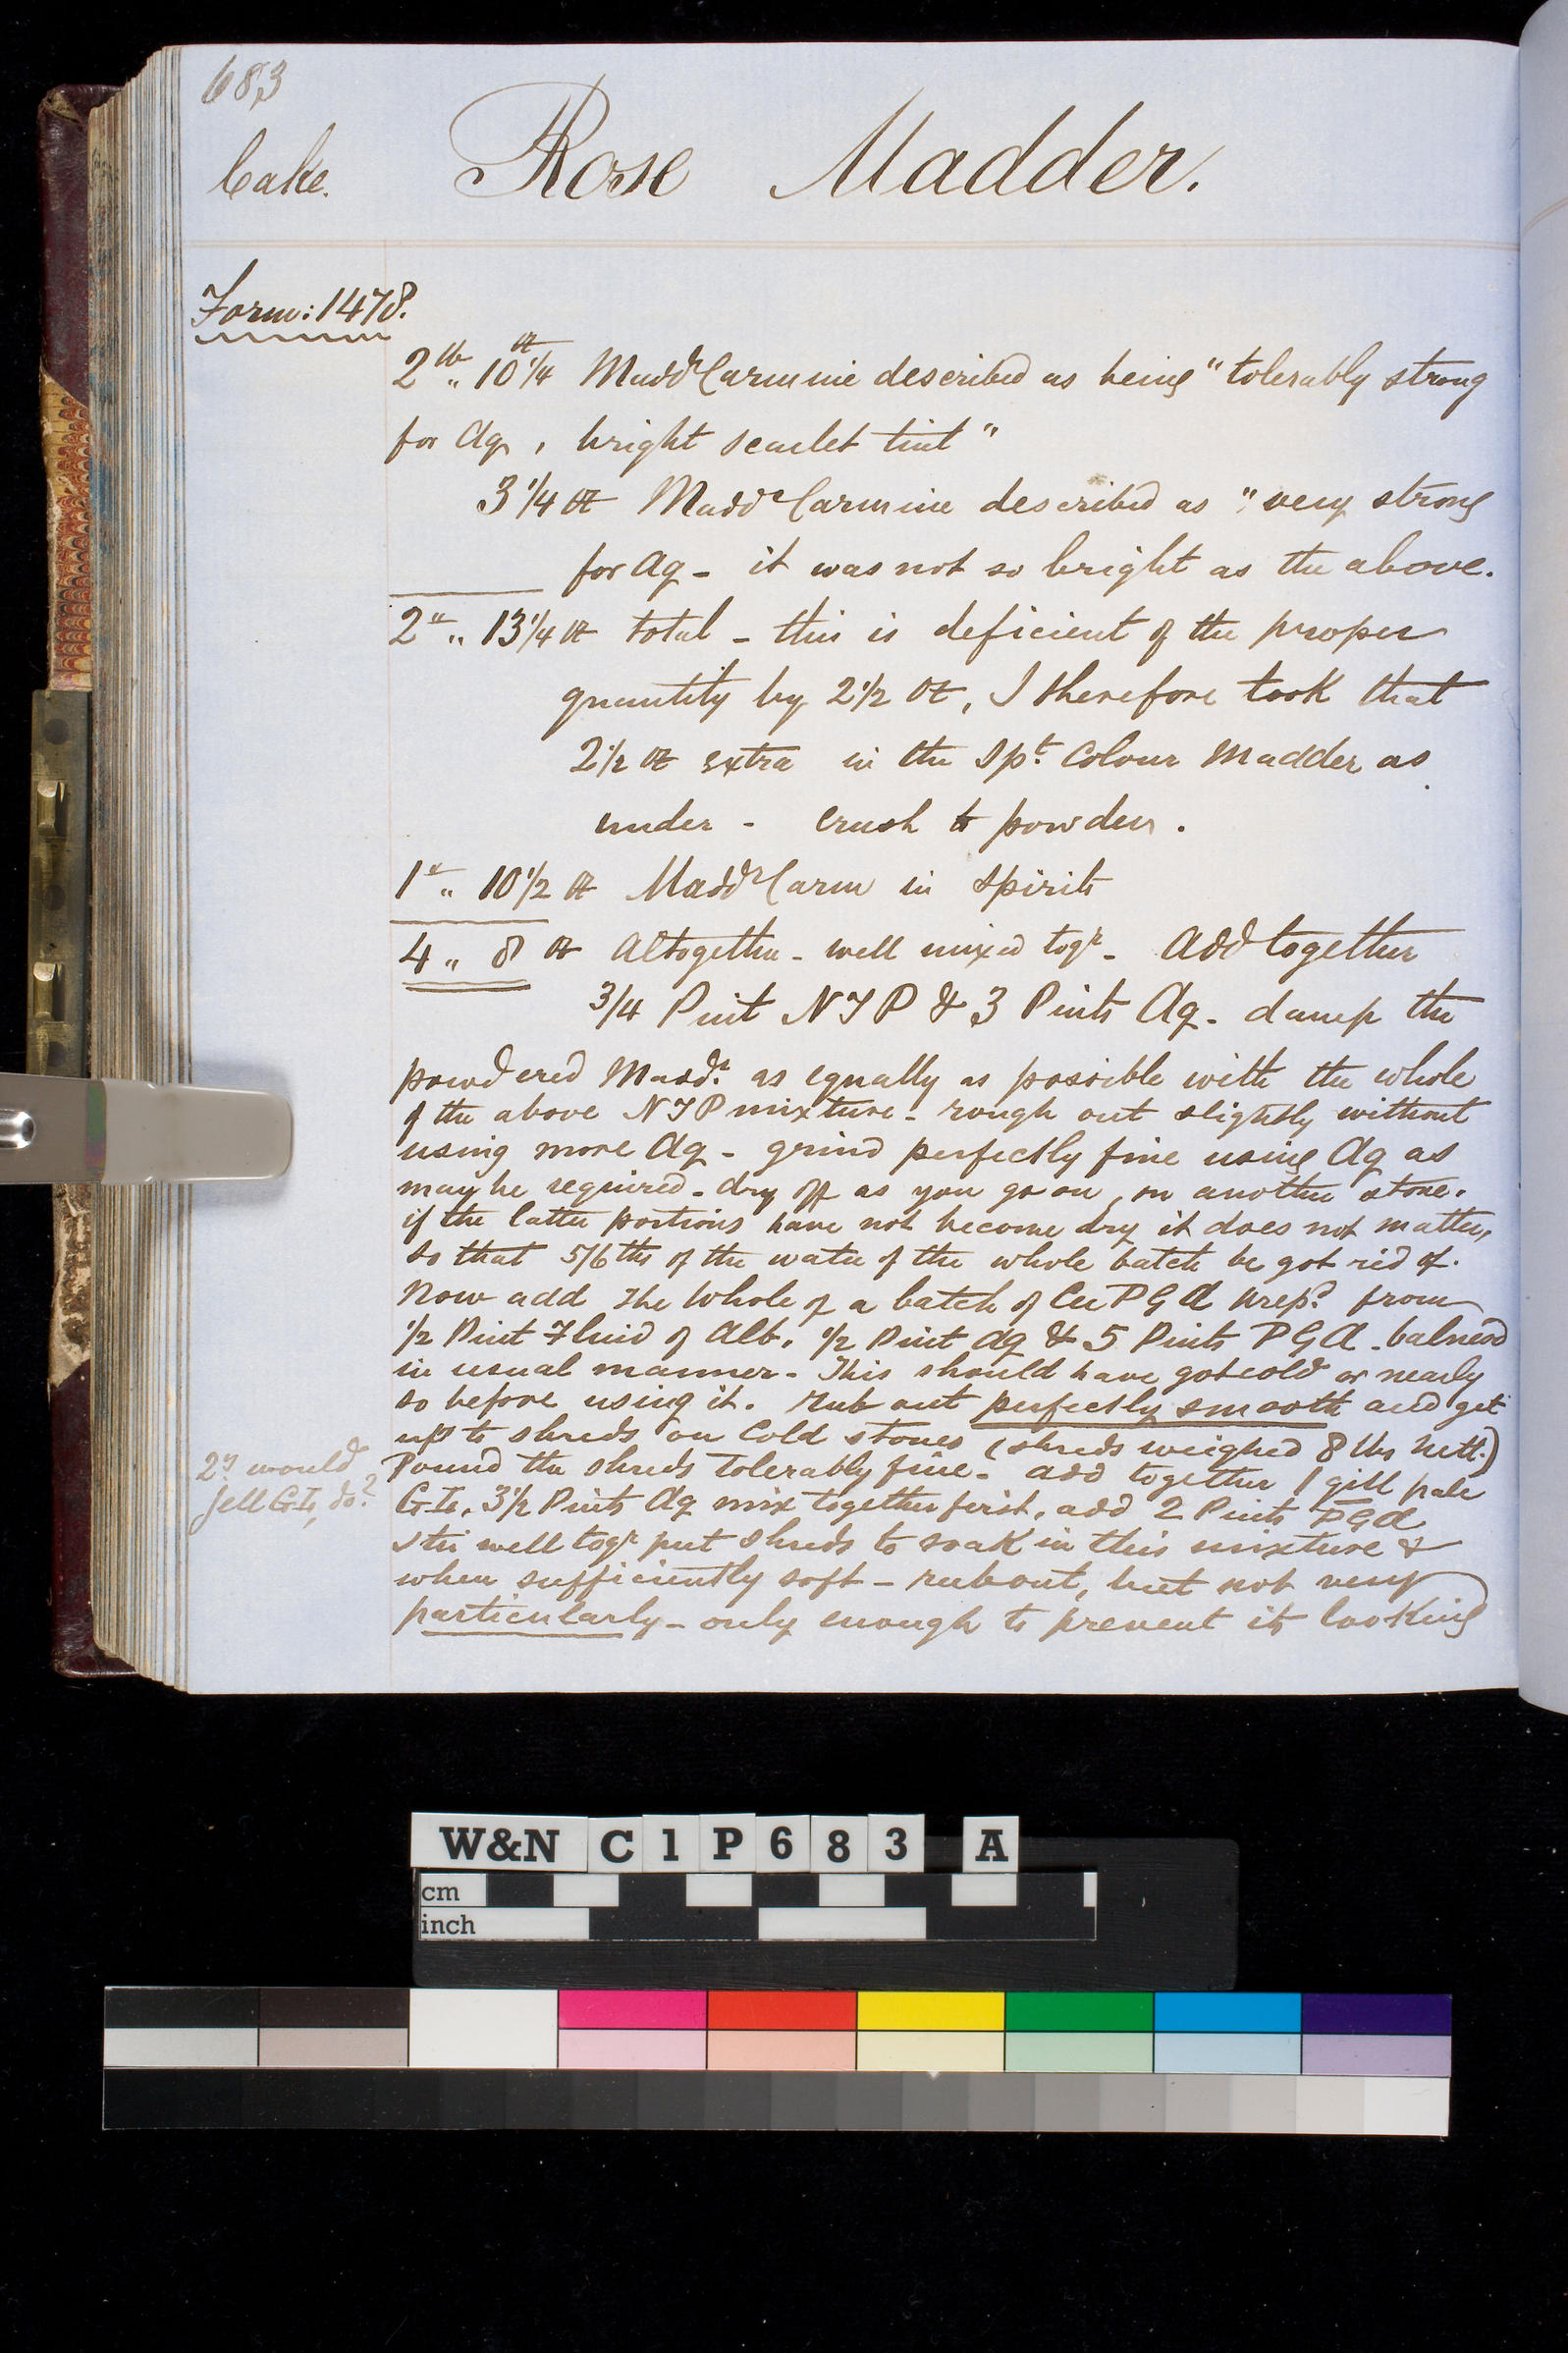 683
Cake. Rose Madder.
Form: 1478.
2 lb „ 10 1/4 oz Maddr Carmine described as being "tolerably strong
for Aq, bright scarlet tint"
3 1/4 oz Maddr Carmine described as "very strong
for Aq - it was not so bright as the above.
2 „ „ 13 1/4 oz total - this is deficient of the proper
quantity by 2 1/2 oz, I therefore took that
2 1/2 oz extra in the Spt Colour Madder as
under - Crush to powder.
1 „ „ 10 1/2 oz Maddr Carm in Spirits
4 „ 8 oz Altogether - well mixed togr - Add together
3/4 Pint N T P & 3 Pints Aq - damp the
powdered Maddr as equally as possible with the whole
of the above N T P mixture - rough out slightly without
using more Aq - grind perfectly fine using Aq as
may be required - dry off as you go on, on another stone.
if the latter portions have not become dry it does not matter,
so that 5/6ths of the water of the whole batch be got rid of.
Now add The Whole of a batch of P G A prepd from
1/2 Pint Fluid of Alb. 1/2 Pint Aq & 5 Pints P G A - balneod
in usual manner - This should have got cold or nearly
so before using it. Rub out perfectly smooth and get
up to shreds on Cold stones (shreds weighed 8 lbs nett.)
Pound the shreds tolerably fine - add together 1 gill pale
G-Ic, 3 1/2 Pints Aq mix together first, add 2 Pints P G A
Stir well togr put shreds to soak in this mixture &
when sufficiently soft - rub out, but not very
particularly - only enough to prevent its looking
would
Jell G.Ic, do?
W&N C 1 P 6 8 3 A
cm
inch